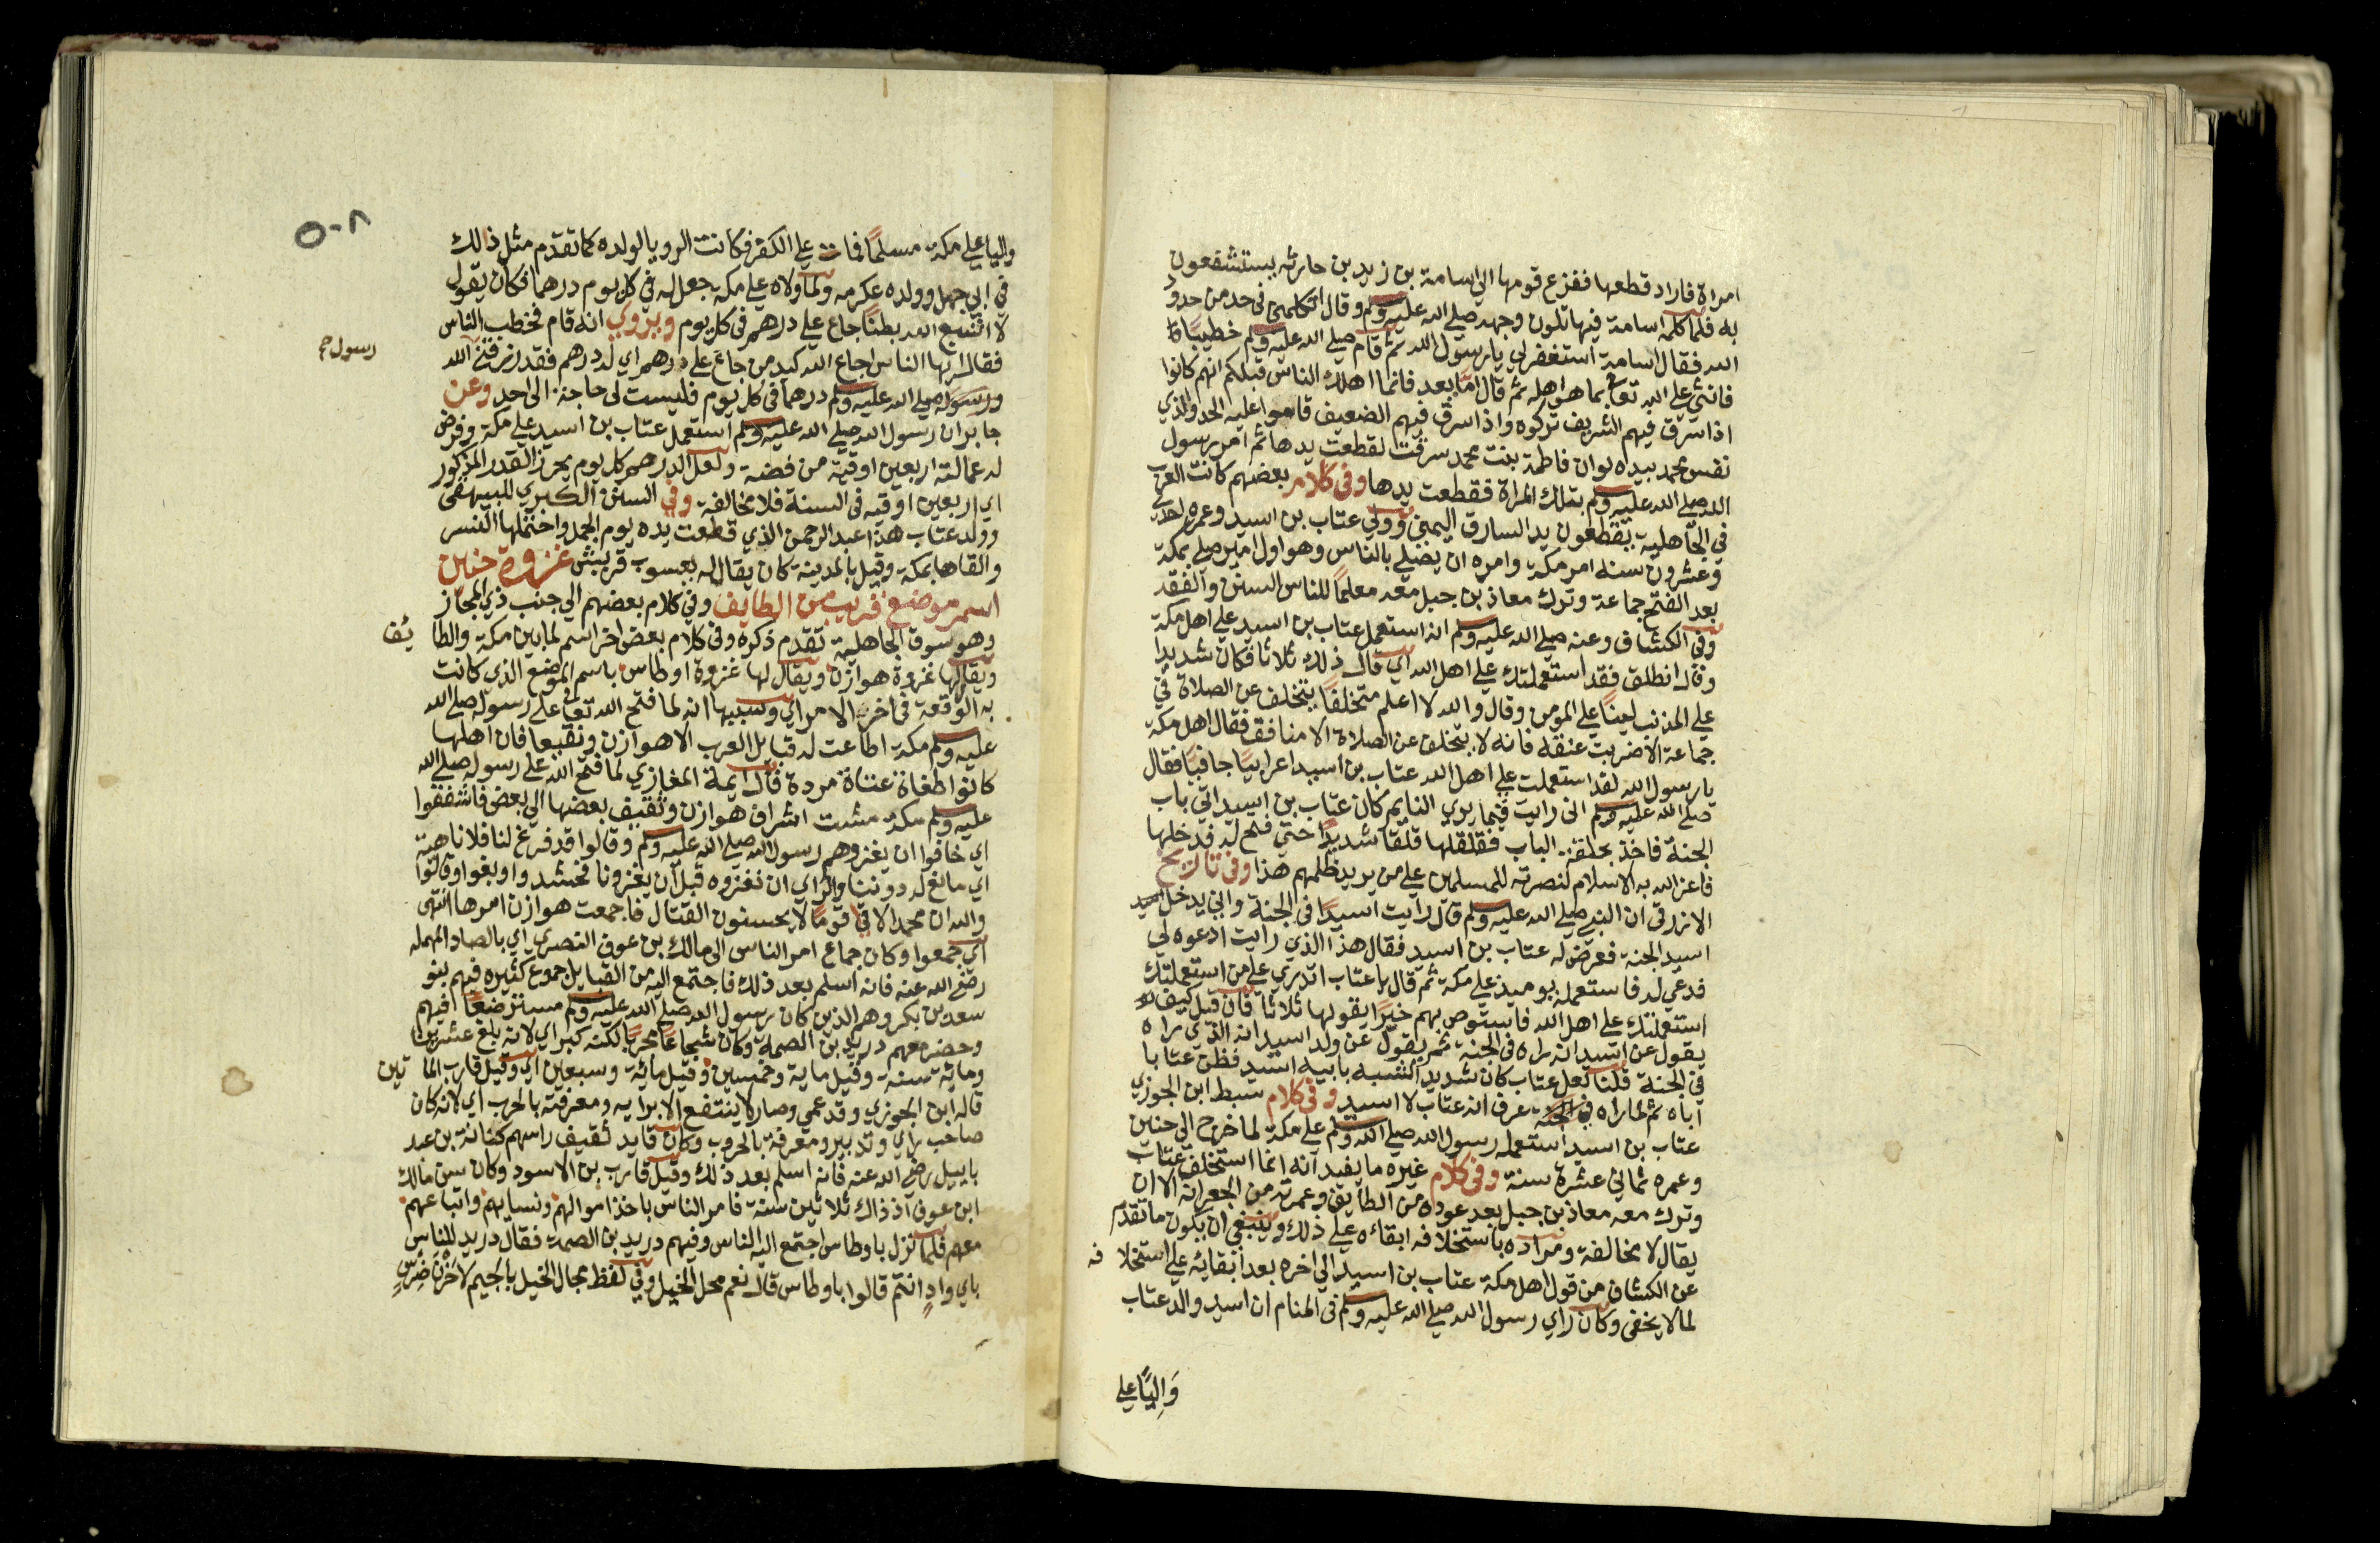 امراة فاراد قطعها ففزع قومها الي اسامة بن زيد بن حارثه يستشفعون
به فلما كلمه اسامة فيها تلون وجهه صلي الله عليه وسلم وقال اتكلمني في حد من حدود
الله فقال اسامة استغفر لي يا رسول الله ثم قام صلي الله عليه وسلم خطيبًا
فاثني علي الله تعا بما هو اهله ثم قال اما بعد فانما اهلك الناس قبلكم انهم كانوا
اذا سرق فيهم الشريف تركوه واذا سرق فيهم الضعيف قاموا عليه الحد والذي
نفس محمد بيده لو ان فاطمة بنت محمد سرقت لقطعت يدها ثم امر رسول
الله صلي الله عليه وسلم بتلك المراة فقطعت يدها وفي كلام بعضهم كانت العرب
في الجاهلية يقطعون يد السارق اليمني وولي عتاب بن اسيد وعمره احدي
وعشرون سنه امر مكة وامره ان يصلي بالناس وهو اول امير صلي بمكة
بعد الفتح جماعة وترك معاذ بن جبل معه معلمًا للناس السنن والفقه
وفي الكشاف وعنه صلي الله عليه وسلم انه استعمل عتاب بن اسيد علي اهل مكة
وقال انطلق فقد استعملتك علي اهل الله اي قال ذلك ثلاثا فكان شديدا
علي المذنب لينًا علي المومن وقال والله لا اعلم متخلفًا يتخلف عن الصلاة في
جماعة الا ضربت عنقه فانه لا يتخلف عن الصلاة الا منافق فقال اهل مكة
يا رسول الله لقد استعملت علي اهل الله عتاب بن اسيد اعرابيًا جافيًا فقال
صلي الله عليه وسلم اني رايت فيما يري النايم كان عتاب بن اسيد اتي باب
الجنة فاخذ بحلقة الباب فقلقلها قلقًا شديدًا حتي فتح له فدخلها
فاعز الله به الاسلام لنصرته للمسلمين علي من يريد ظلمهم هذا وفي تاريخ
الازرقي ان النبي صلي الله عليه وسلم قال رايت اسيدًا في الجنة واني يدخل
اسيد الجنة فعرض له عتاب بن اسيد فقال هذا الذي رايت ادعوه لي
فدعي له فاستعمله يوميذ علي مكة ثم قال يا عتاب اتدري علي من استعملتك
استعملتك علي اهل الله فاستوص بهم خيرًا يقولها ثلاثًا فان قيل كيف
يقول عن اسيد انه راه في الجنة ثم يقول عن ولد اسيد انه الذي راه
في الجنة قلنا لعل عتاب كان شديد الشبه بابيه اسيد فظن عتابا
اباه ثم لما راه في الجنة عرف انه عتاب لا اسيد وفي كلام سبط ابن الجوزي
عتاب بن اسيد استعمله رسول الله صلي الله وسلم علي مكة لما خرج الي حنين
وعمره ثماني عشرة سنة وفي كلام غيره ما يفيد انه انما استخلف عتاب
وترك معه معاذ بن جبل بعد عوده من الطايف وعمرته من الجعرانة الا ان
يقال لا مخالفة ومراده باستخلافه ابقاءه علي ذلك وينبغي ان يكون ما تقدم
عن الكشاف من قول اهل مكة عتاب بن اسيد الي اخره بعد ابقائه علي استخلافه
لما لا يخفي وكان راي رسول الله صلي الله عليه وسلم في المنام ان اسيد والد عتاب
وَاليًا علي
٥٠٨
واليا علي مكة مسلمًا فمات علي الكفر فكانت الرويا لولده كما تقدم مثل ذلك
في ابي جهل وولده عكرمه ولما ولاه علي مكة جعل له في كل يوم درهما فكان يقول
لا اشبع الله بطنًا جاع علي درهم في كل يوم ويروي انه قام فخطب الناس
فقال ايها الناس اجاع الله كبد من جاع علي درهم اي له درهم فقد رزقني الله
رسول صح
ورسوله صلي الله عليه وسلم درهما في كل يوم فليست لي حاجة الي احد وعن
جابر ان رسول الله صلي الله عليه وسلم استعمل عتاب بن اسيد علي مكة وفرض
له عمالته اربعين اوقية من فضة ولعل الدرهم كل يوم يحرز القدر المذكور
اي اربعين اوقيه في السنة فلا مخالفة وفي السنن الكبري للبيهقي
وولد عتاب هذا عبد الرحمن الذي قطعت يده يوم الجمل واحتملها النسر
والقاها بمكة وقيل بالمدينة كان يقال له يعسوب قريش غزوة حنين
اسم موضع قريب من الطايف وفي كلام بعضهم الي جنب ذي المجاز
وهو سوق الجاهلية تقدم ذكره وفي كلام بعض اخر اسم لما بين مكة والطائف
ويقال لها غزوة هوازن ويقال لها غزوة اوطاس باسم الموضع الذي كانت
به الوقعة في اخر الامر اي وسببها انه لما فتح الله تعا علي رسوله صلي الله
عليه وسلم مكة اطاعت له قبايل العرب الا هوازن وثقيفا فان اهلها
كانوا طغاة عتاة مردة قال ايمة المغازي لما فتح الله علي رسوله صلي الله
عليه وسلم مكة مشت اشراف هوازن وثقيف بعضها الي بعض فاشفقوا
اي خافوا ان يغزوهم رسول الله صلي الله عليه وسلم وقالوا قد فرغ لنا فلا ناهية
اي مانع له دوننا والراي ان نغزوه قبل ان يغزونا فحشدوا وبغوا وقالوا
والله ان محمدا لاقي قومًا لا يحسنون القتال فاجمعت هوازن امرها انتهي
اي جمعوا وكان جماع امر الناس الي مالك بن عوف النصري اي بالصاد المهمله
رضي الله عنه فانه اسلم بعد ذلك فاجتمع اليه من القبايل جموع كثيره فيهم بنو
سعد بن بكر وهم الذين كان رسول الله صلي الله عليه وسلم مسترضعًا فيهم
وحضر معهم دريد بن الصمة وكان شجاعًا مجربًا لكنه كبر اي لانه بلغ عشرين
وماية سنة وقيل ماية وخمسين وقيل مائة وسبعين اي وقيل قارب المائتين
قاله ابن الجوزي وقد عمي وصار لا ينتفع الا برايه ومعرفته بالحرب اي لانه كان
صاحب راي وتدبير ومعرفة بالحروب وكان قايد ثقيف راسهم كنانة بن عبد
باليل رضي الله عنه فانه اسلم بعد ذلك وقيل قارب بن الاسود وكان سن مالك
ابن عوف اذ ذاك ثلاثين سنة فامر الناس باخذ اموالهم ونسايهم واتباعهم
معهم فلما نزل باوطاس اجتمع اليه الناس وفيهم دريد بن الصمة فقال دريد للناس
باي وادٍ انتم قالوا باوطاس قال نعم محل الخيل وفي لفظ مجال الخيل بالجيم لا حَزْن ضِرْس